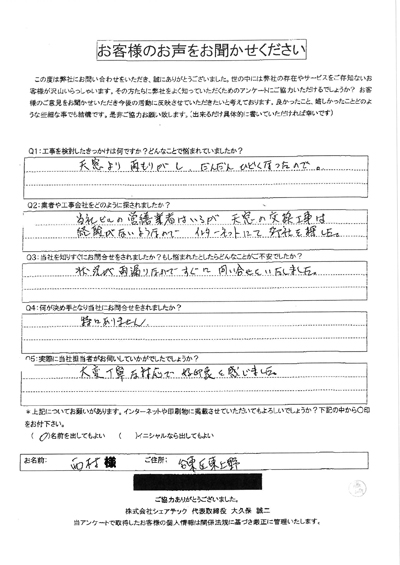 お客様のお声をお聞かせください
この度は弊社にお問い合わせをいただき、誠にありがとうございました。世の中には弊社の存在やサービスをご存知ないお
客様が沢山いらっしゃいます。その方たちに弊社をよく知っていただくためのアンケートにご協力いただけるでしょうか？ お客
様のご意見をお聞かせいただき今後の活動に反映させていただきたいと考えております。良かったこと、嬉しかったことどのよう
な些細な事でも結構です。是非ご協力お願い致します。（出来るだけ具体的に書いていただければ幸いです）
Q1:工事を検討したきっかけは何ですか？どんなことで悩まれていましたか？
天窓より雨もりがし、だんだんひどくなったので。
Q2:業者や工事会社をどのように探されましたか？
当社ビルの営繕業者はいるが 天窓の交換工事は
経験がないようなので インターネットにて会社を探した。
Q3:当社を知りすぐにお問合せをされましたか？もし悩まれたとしたらどんなことがご不安でしたか？
状況が雨漏りなのですぐに問い合せをいたしました。
Q4:何が決め手となり当社にお問合せをされましたか？
特にありません
Q5:実際に当社担当者がお伺いしていかがでしたでしょうか？
大変丁寧な対応で 好印象と感じました。
＊上記についてお願いがあります。インターネットや印刷物に掲載させていただいてもよろしいでしょうか？下記の中から〇印
をお付下さい。
（〇）名前を出してもよい （ ）イニシャルなら出してもよい
お名前: 西村 様 ご住所: 台東区東上野
ご協力ありがとうございました。
株式会社シェアテック 代表取締役 大久保 誠二
当アンケートで取得したお客様の個人情報は関係法規に基づき厳正に管理いたします。